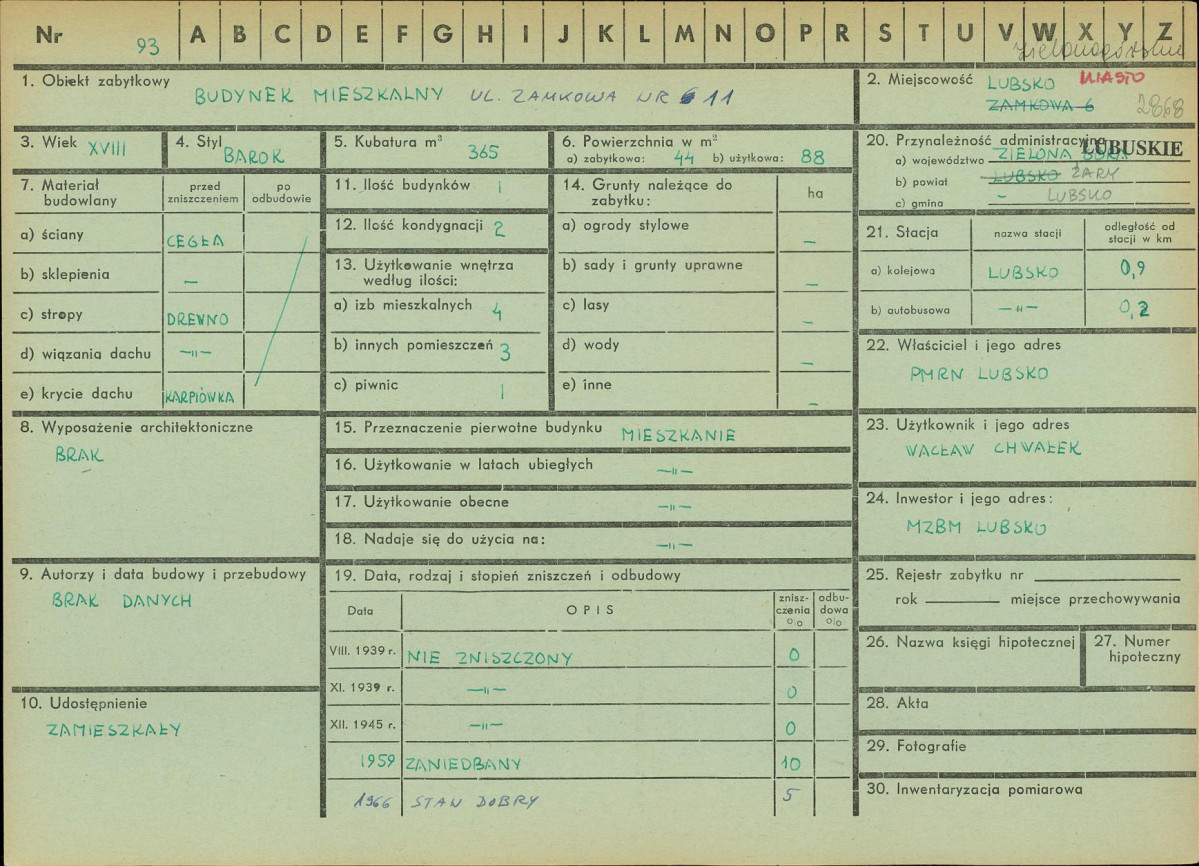 Nr 93 A B C D E F G H I J K L M N O P R S T U V W X Y Z
zielonogórskie
1. Obiekt zabytkowy
BUDYNEK MIESZKALNY UL. ZAMKOWA NR 6 11
2. Miejscowość LUBSKO MIASTO
ZAMKOWA 6 2868
3. Wiek XVIII
4. Styl BAROK
5. Kubatura m³ 365
6. Powierzchnia w m²
a) zabytkowa: 44 b) użytkowa: 88
20. Przynależność administracyjna
LUBUSKIE
a) województwo ZIELONA GÓRA
b) powiat LUBSKO ŻARY
c) gmina – LUBSKO
7. Materiał budowlany
przed zniszczeniem
po odbudowie
a) ściany CEGŁA
b) sklepienia –
c) stropy DREWNO
d) wiązania dachu –"–
e) krycie dachu KARPIÓWKA
11. Ilość budynków 1
12. Ilość kondygnacji 2
13. Użytkowanie wnętrza
według ilości:
a) izb mieszkalnych 4
b) innych pomieszczeń 3
c) piwnic 1
14. Grunty należące do
zabytku: ha
a) ogrody stylowe –
b) sady i grunty uprawne –
c) lasy –
d) wody –
e) inne –
21. Stacja nazwa stacji odległość od
stacji w km
a) kolejowa LUBSKO 0,9
b) autobusowa –"– 0,2
22. Właściciel i jego adres
PMRN LUBSKO
8. Wyposażenie architektoniczne
BRAK
15. Przeznaczenie pierwotne budynku MIESZKANIE
16. Użytkowanie w latach ubiegłych –"–
17. Użytkowanie obecne –"–
18. Nadaje się do użycia na: –"–
23. Użytkownik i jego adres
WACŁAW CHWAŁEK
24. Inwestor i jego adres:
MZBM LUBSKO
9. Autorzy i data budowy i przebudowy
BRAK DANYCH
19. Data, rodzaj i stopień zniszczeń i odbudowy
Data OPIS znisz-
czenia
%
odbu-
dowa
%
VIII. 1939 r. NIE ZNISZCZONY 0
XI. 1939 r. –"– 0
XII. 1945 r. –"– 0
1959 ZANIEDBANY 10
1966 STAN DOBRY 5
25. Rejestr zabytku nr
rok miejsce przechowywania
26. Nazwa księgi hipotecznej
27. Numer
hipoteczny
10. Udostępnienie
ZAMIESZKAŁY
28. Akta
29. Fotografie
30. Inwentaryzacja pomiarowa